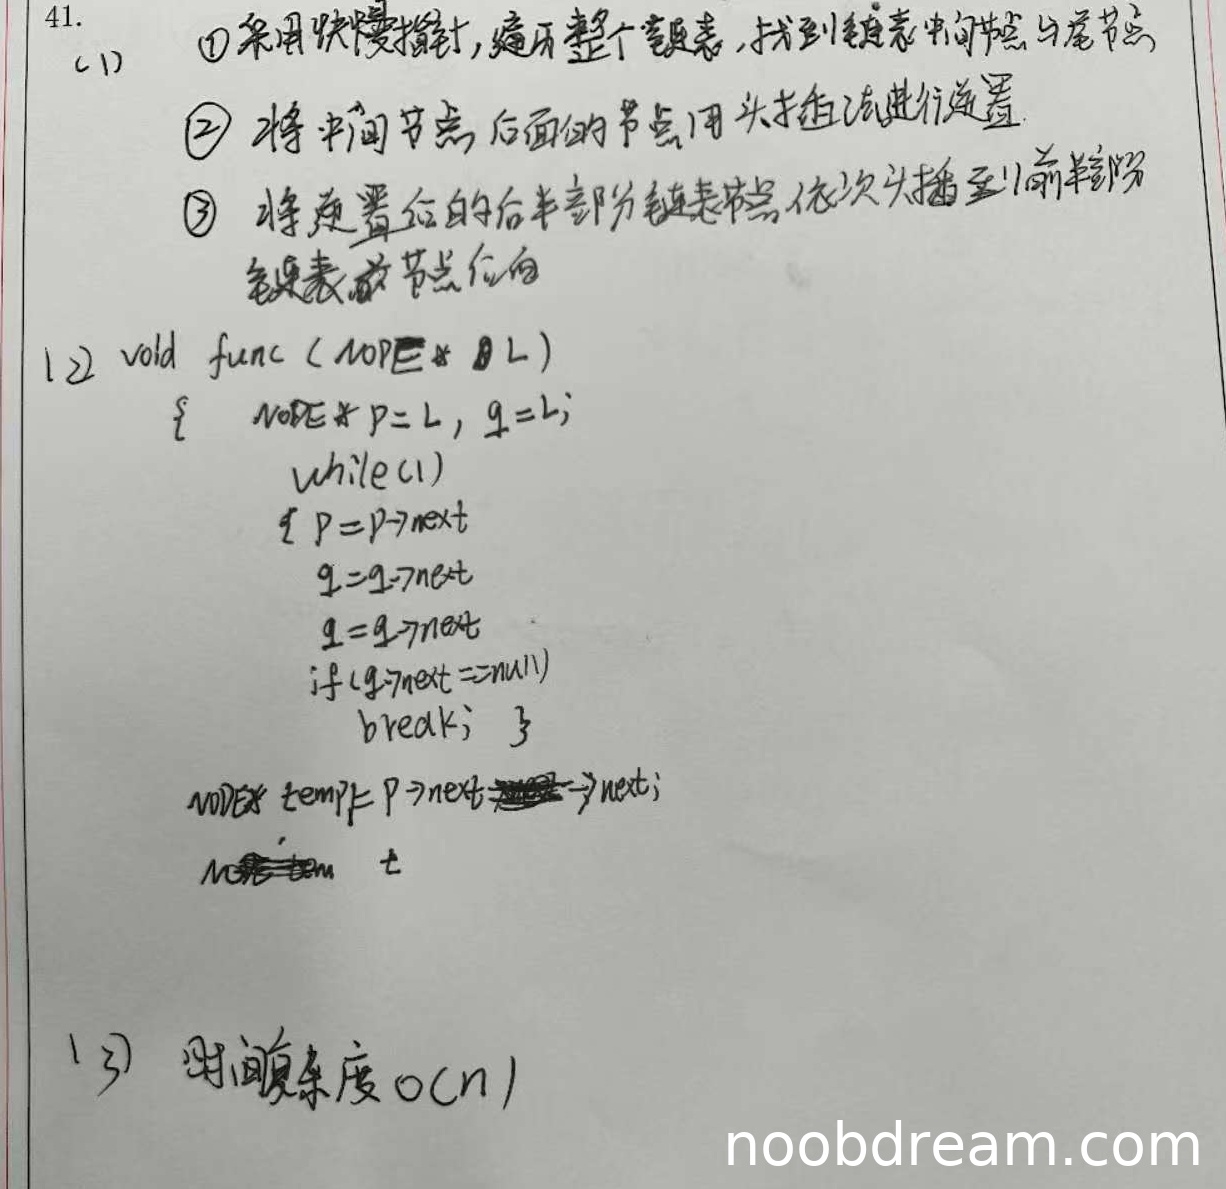 41.
(1) ①采用快慢指针,遍历整个链表,找到链表中间节点与尾节点
② 将中间节点后面的节点用头插法进行逆置.
③ 将逆置后的后半部分链表节点依次头插到前半部分
链表 节点位的
(2) void func (NODE* L)
{ NODE* p=L, q=L;
while(1)
{ p=p->next
q=q->next
q=q->next
if(q->next==null)
break; }
NODE* temp= p->next ->next;
t
(3) 时间复杂度O(n)
noobdream.com